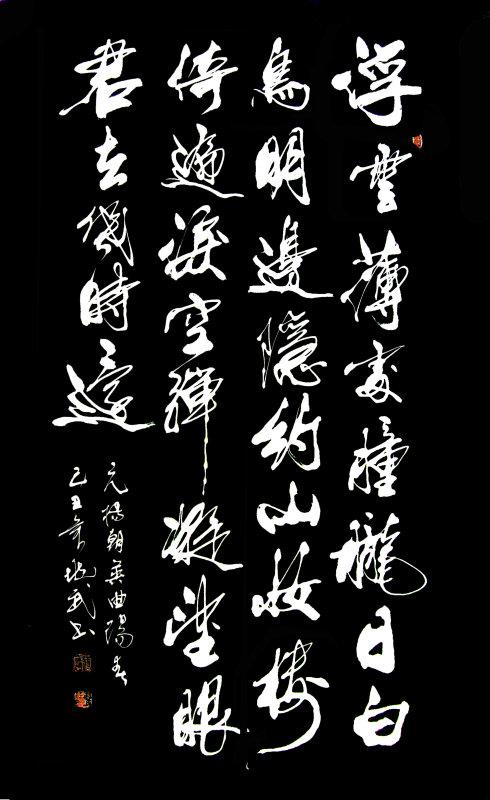 浮雲薄處朣朧日白
鳥明邊隱約山妝樓
倚遍淚空彈凝望眼
君去幾時還
元楊朝英曲陽春
己丑年武書